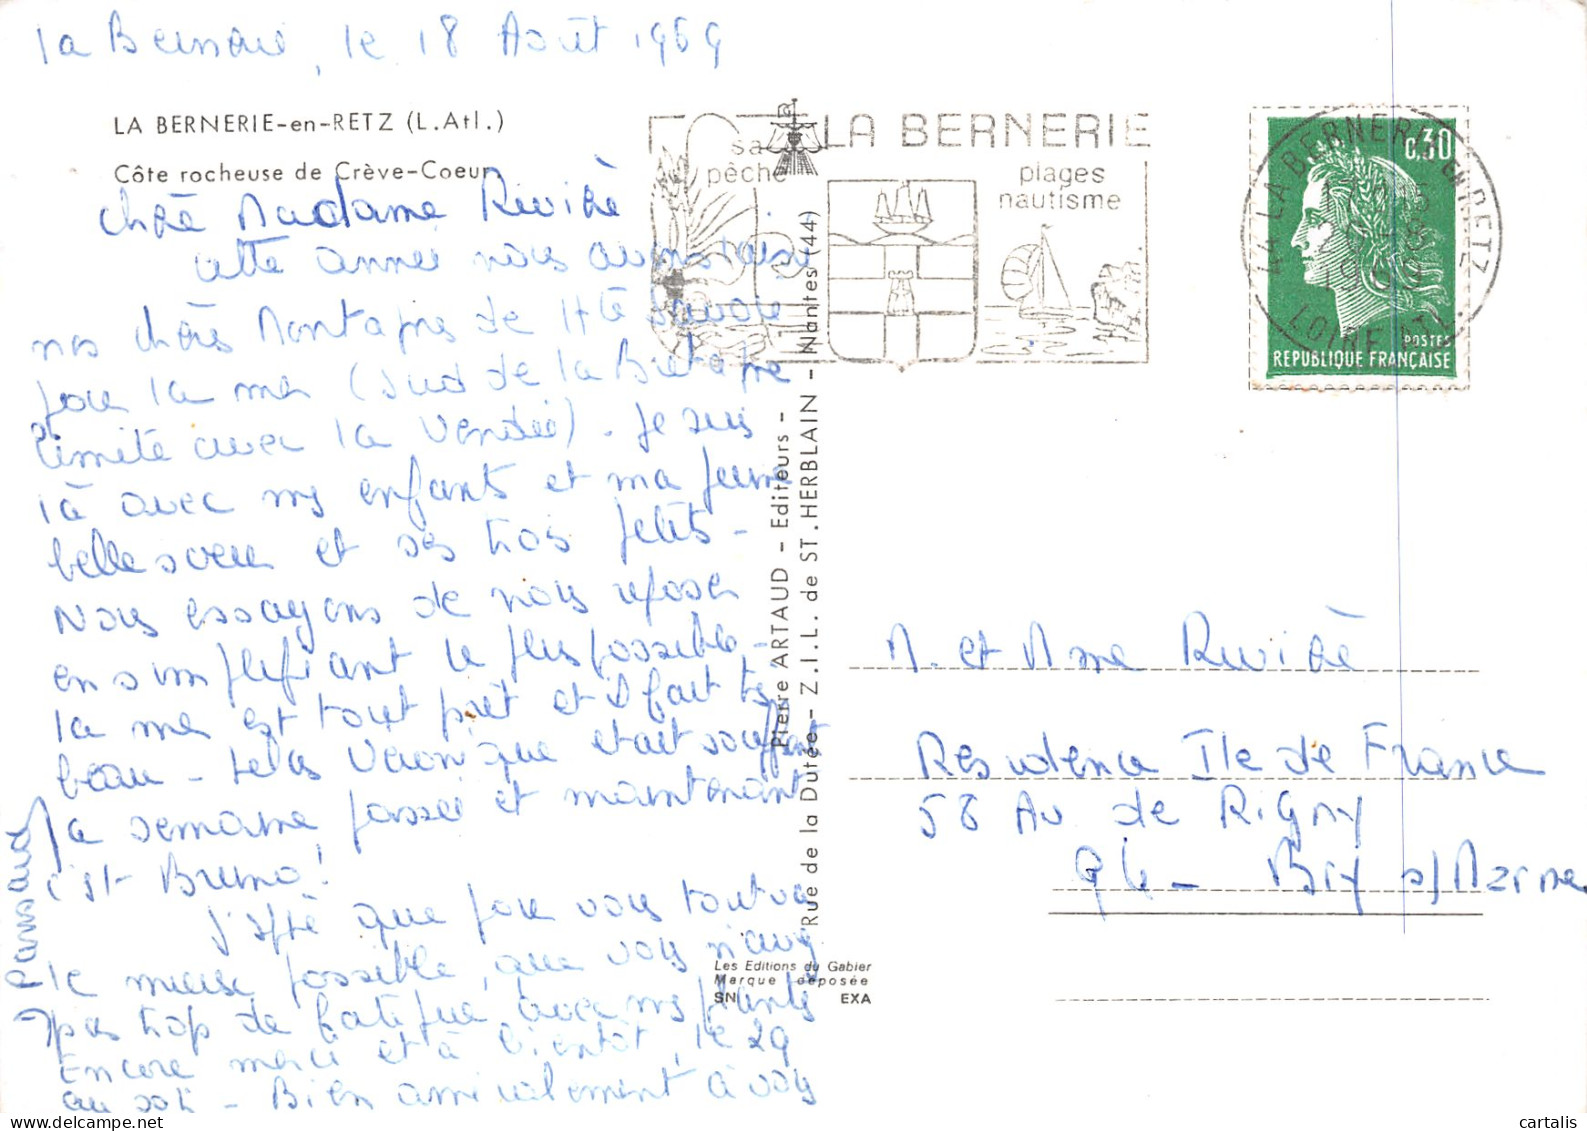 la Bernerie, le 18 Août 1969
LA BERNERIE-en-RETZ (L.Atl.)
Côte rocheuse de Crève-Coeur
Chère Madame Rivière
cette année nous avons laissé
nos chères Montagnes de Hte Savoie
pour la mer (Sud de la Bretagne
limite avec la Vendée). Je suis
là avec mes enfants et ma jeune
belle soeur et ses trois petits -
Nous essayons de nous reposer
en simplifiant le plus possible -
la mer est tout près et il fait très
beau - hélas Véronique était souffrante
la semaine passée et maintenant
c'est Bruno!
J'espère que pour vous tout va
le mieux possible, que vous n'avez
pas trop de fatigue avec mes plantes
Encore merci et à bientôt, le 29
au soir - Bien amicalement à vous
SA
pêche
LA BERNERIE
plages
nautisme
44 LA BERNERIE EN RETZ
1969
LOIRE ATL.
0,30
POSTES
REPUBLIQUE FRANÇAISE
Pierre ARTAUD - Editeurs -
Rue de la Dutée - Z.I.L. de ST.HERBLAIN - Nantes (44)
Les Editions du Gabier
Marque déposée
SN EXA
M. et Mme Rivière
Résidence Ile de France
58 Av de Rigny
94 - Bry s/Marne
cartalis